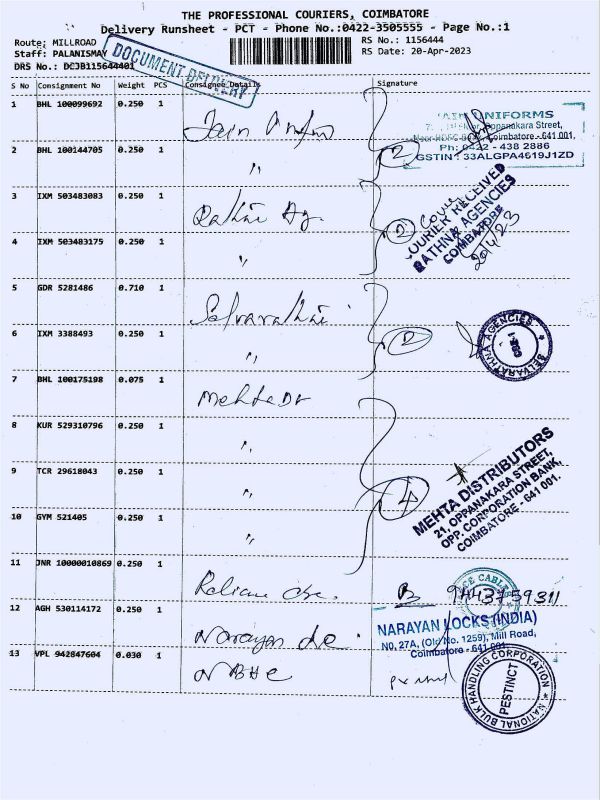 THE PROFESSIONAL COURIERS, COIMBATORE
Delivery Runsheet - PCT - Phone No.:0422-3505555 - Page No.:1
Route: MILLROAD
RS No.: 1156444
Staff: PALANISMAY
RS Date: 20-Apr-2023
DRS No.: DCJB115644401
DOCUMENT DELIVERY
S No Consignment No Weight PCS Consignee Details Signature
1 BHL 100099692 0.250 1
UNIFORMS
Oppanakara Street,
Coimbatore - 641 001,
Ph: 0422 - 438 2886
GSTIN : 33ALGPA4619J1ZD
2 BHL 100144705 0.250 1 〃 2
3 IXM 503483083 0.250 1 2
COURIER RECEIVED
RATHNA AGENCIES
COIMBATORE
20/4/23
4 IXM 503483175 0.250 1 〃
5 GDR 5281486 0.710 1
6 IXM 3388493 0.250 1 〃 2
SELVARATHNA AGENCIES
CBE-1
7 BHL 100175198 0.075 1 Mehta Dr
8 KUR 529310796 0.250 1 〃
9 TCR 29618043 0.250 1 〃 4
MEHTA DISTRIBUTORS
21, OPPANAKARA STREET,
OPP. CORPORATION BANK,
COIMBATORE - 641 001.
10 GYM 521405 0.250 1 〃
11 JNR 10000010869 0.250 1 9443759311
CABLE
12 AGH 530114172 0.250 1 Narayan
NARAYAN LOCKS (INDIA)
NO, 27A, (Old No. 1259), Mill Road,
Coimbatore - 641 001.
13 VPL 942847604 0.030 1 NBHC
NATIONAL BULK HANDLING CORPORATION
PESTINCT